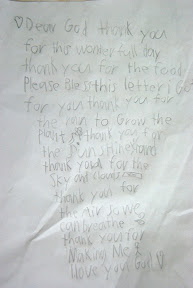 ♡Dear God thank you
for this wonterfull day
thank you for the food
Please bless this letter i Got
for you thank you for
the rain to Grow the
plants thank you for
the Sun shine and
thank you for the
Sky and clouds and
thank you for
the Air so we
can breathe
thank you for
Making Me &
I love you God ♡